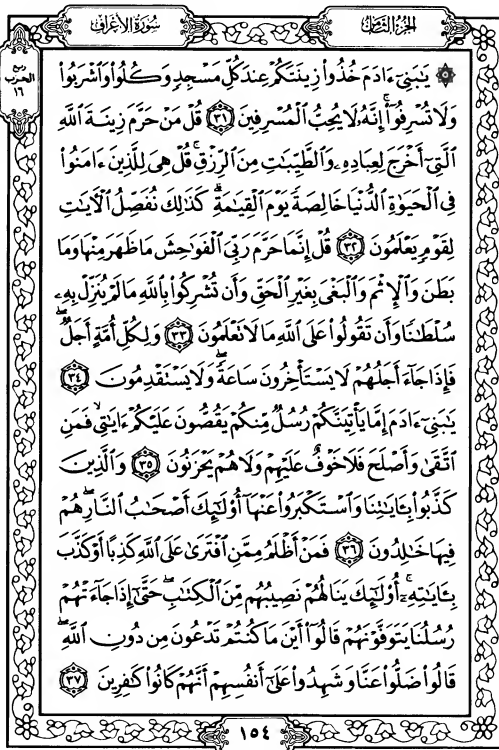 سُورَةُ الأَعْرَافِ
الجُزْءُ الثَّامِنُ
ربع
الحزب
١٦
يَٰبَنِىٓ ءَادَمَ خُذُوا۟ زِينَتَكُمْ عِندَ كُلِّ مَسْجِدٍ وَكُلُوا۟ وَٱشْرَبُوا۟
وَلَا تُسْرِفُوٓا۟ ۚ إِنَّهُۥ لَا يُحِبُّ ٱلْمُسْرِفِينَ ٣١ قُلْ مَنْ حَرَّمَ زِينَةَ ٱللَّهِ
ٱلَّتِىٓ أَخْرَجَ لِعِبَادِهِۦ وَٱلطَّيِّبَٰتِ مِنَ ٱلرِّزْقِ ۚ قُلْ هِىَ لِلَّذِينَ ءَامَنُوا۟
فِى ٱلْحَيَوٰةِ ٱلدُّنْيَا خَالِصَةً يَوْمَ ٱلْقِيَٰمَةِ ۗ كَذَٰلِكَ نُفَصِّلُ ٱلْءَايَٰتِ
لِقَوْمٍ يَعْلَمُونَ ٣٢ قُلْ إِنَّمَا حَرَّمَ رَبِّىَ ٱلْفَوَٰحِشَ مَا ظَهَرَ مِنْهَا وَمَا
بَطَنَ وَٱلْإِثْمَ وَٱلْبَغْىَ بِغَيْرِ ٱلْحَقِّ وَأَن تُشْرِكُوا۟ بِٱللَّهِ مَا لَمْ يُنَزِّلْ بِهِۦ
سُلْطَٰنًا وَأَن تَقُولُوا۟ عَلَى ٱللَّهِ مَا لَا تَعْلَمُونَ ٣٣ وَلِكُلِّ أُمَّةٍ أَجَلٌ ۖ
فَإِذَا جَآءَ أَجَلُهُمْ لَا يَسْتَأْخِرُونَ سَاعَةً ۖ وَلَا يَسْتَقْدِمُونَ ٣٤
يَٰبَنِىٓ ءَادَمَ إِمَّا يَأْتِيَنَّكُمْ رُسُلٌ مِّنكُمْ يَقُصُّونَ عَلَيْكُمْ ءَايَٰتِى ۙ فَمَنِ
ٱتَّقَىٰ وَأَصْلَحَ فَلَا خَوْفٌ عَلَيْهِمْ وَلَا هُمْ يَحْزَنُونَ ٣٥ وَٱلَّذِينَ
كَذَّبُوا۟ بِـَٔايَٰتِنَا وَٱسْتَكْبَرُوا۟ عَنْهَآ أُو۟لَٰٓئِكَ أَصْحَٰبُ ٱلنَّارِ ۖ هُمْ
فِيهَا خَٰلِدُونَ ٣٦ فَمَنْ أَظْلَمُ مِمَّنِ ٱفْتَرَىٰ عَلَى ٱللَّهِ كَذِبًا أَوْ كَذَّبَ
بِـَٔايَٰتِهِۦٓ ۚ أُو۟لَٰٓئِكَ يَنَالُهُمْ نَصِيبُهُم مِّنَ ٱلْكِتَٰبِ ۖ حَتَّىٰٓ إِذَا جَآءَتْهُمْ
رُسُلُنَا يَتَوَفَّوْنَهُمْ قَالُوٓا۟ أَيْنَ مَا كُنتُمْ تَدْعُونَ مِن دُونِ ٱللَّهِ ۖ
قَالُوا۟ ضَلُّوا۟ عَنَّا وَشَهِدُوا۟ عَلَىٰٓ أَنفُسِهِمْ أَنَّهُمْ كَانُوا۟ كَٰفِرِينَ ٣٧
١٥٤